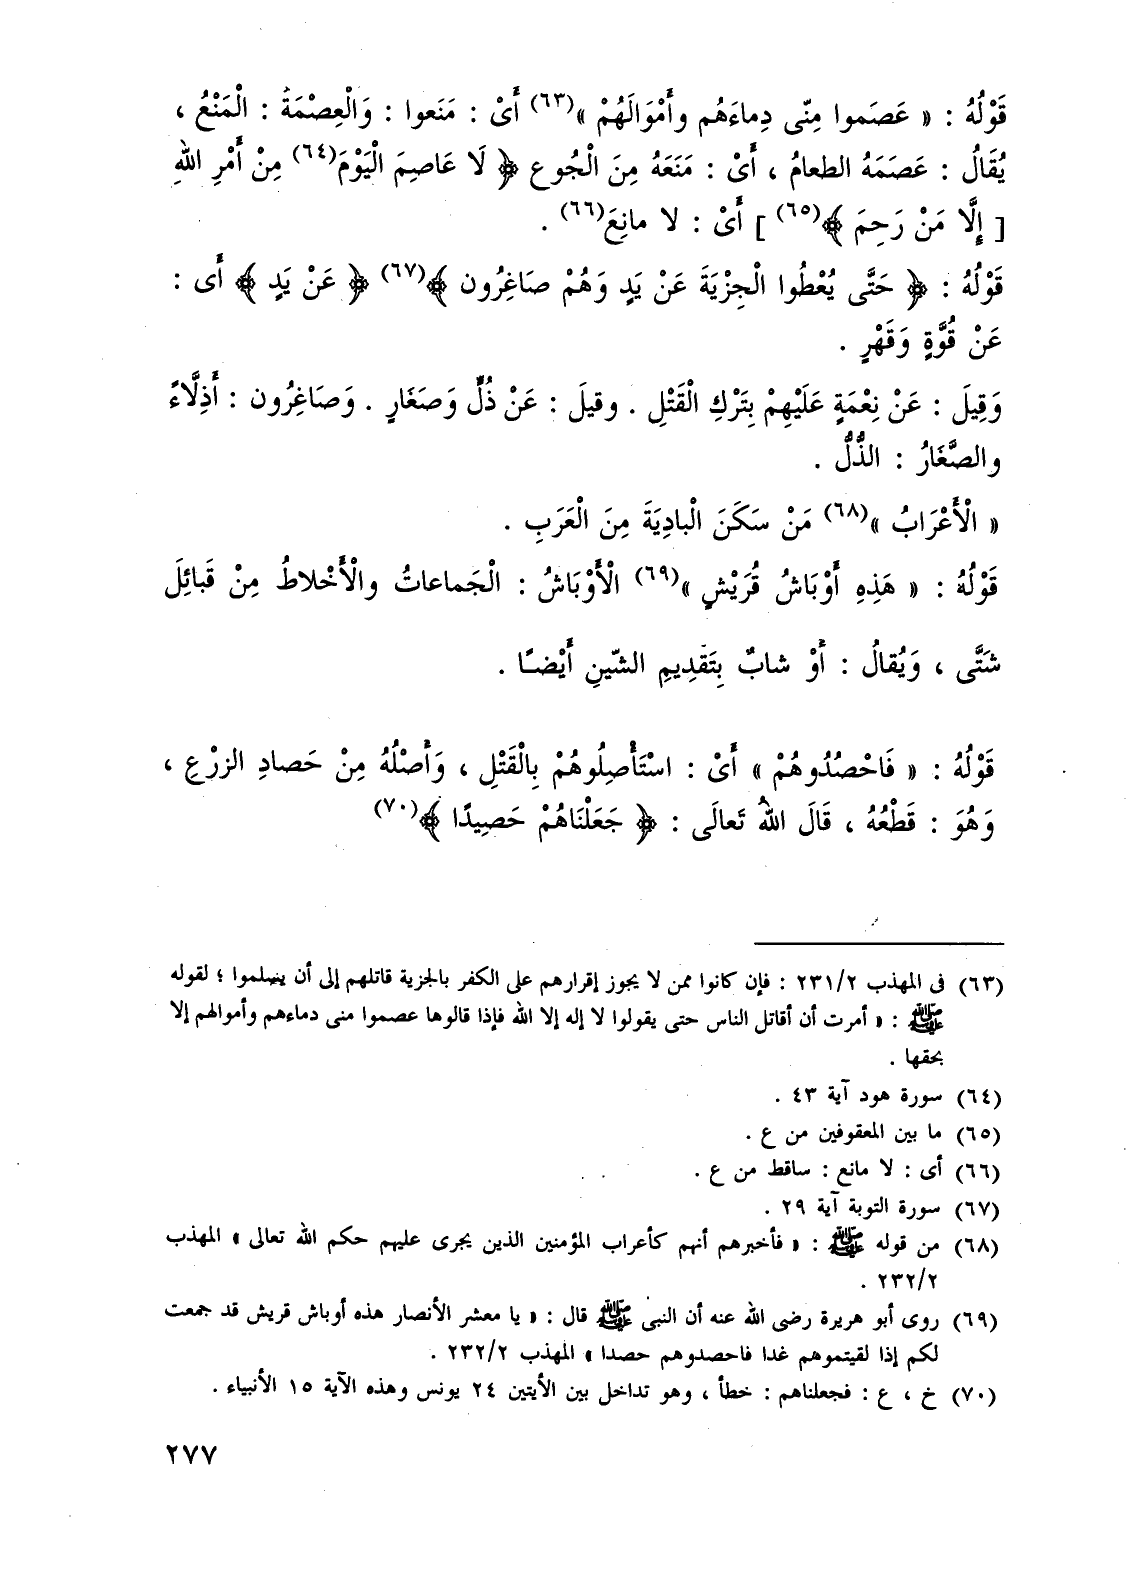 قَوْلُهُ : « عَصَموا مِنّى دِماءَهُم وأَمْوَالَهُمْ »(٦٣) أَىْ : مَنَعوا : وَالْعِصْمَةُ : الْمَنْعُ ،
يُقَالُ : عَصَمَهُ الطعامُ ، أَىْ : مَنَعَهُ مِنَ الْجُوعِ ﴿ لَا عَاصِمَ الْيَوْمَ(٦٤) مِنْ أَمْرِ اللهِ
[ إِلَّا مَنْ رَحِمَ ﴾(٦٥) ] أَىْ : لا مانِعَ(٦٦) .
قَوْلُهُ : ﴿ حَتَّى يُعْطُوا الْجِزْيَةَ عَنْ يَدٍ وَهُمْ صَاغِرُون ﴾(٦٧) ﴿ عَنْ يَدٍ ﴾ أَى :
عَنْ قُوَّةٍ وَقَهْرٍ .
وَقِيلَ : عَنْ نِعْمَةٍ عَلَيْهِمْ بِتَرْكِ الْقَتْلِ . وقيلَ : عَنْ ذُلٍّ وَصَغَارٍ . وَصَاغِرُون : أَذِلَّاءً
والصَّغَارُ : الذُّلُّ .
« الْأَعْرَابُ »(٦٨) مَنْ سَكَنَ الْبادِيَةَ مِنَ الْعَرَبِ .
قَوْلُهُ : « هَذِهِ أَوْبَاشُ قُرَيْشٍ »(٦٩) الْأَوْبَاشُ : الْجَماعاتُ والْأَخْلاطُ مِنْ قَبائِلَ
شَتَّى ، وَيُقالُ : أَوْ شابٌ بِتَقْدِيمِ الشّينِ أَيْضـًا .
قَوْلُهُ : « فَاحْصُدُوهُمْ » أَىْ : اسْتَأْصِلُوهُمْ بِالْقَتْلِ ، وَأَصْلُهُ مِنْ حَصادِ الزرْعِ ،
وَهُوَ : قَطْعُهُ ، قَالَ اللهُ تَعالَى : ﴿ جَعَلْنَاهُمْ حَصِيدًا ﴾(٧٠)
(٦٣) فى المهذب ٢٣١/٢ : فإن كانوا ممن لا يجوز إقرارهم على الكفر بالجزية قاتلهم إلى أن يسلموا ؛ لقوله
ﷺ : « أمرت أن أقاتل الناس حتى يقولوا لا إله إلا الله فإذا قالوها عصموا منى دماءهم وأموالهم إلا
بحقها .
(٦٤) سورة هود آية ٤٣ .
(٦٥) ما بين المعقوفين من ع .
(٦٦) أى : لا مانع : ساقط من ع .
(٦٧) سورة التوبة آية ٢٩ .
(٦٨) من قوله ﷺ : « فأخبرهم أنهم كأعراب المؤمنين الذين يجرى عليهم حكم الله تعالى » المهذب
٢٣٢/٢ .
(٦٩) روى أبو هريرة رضى الله عنه أن النبى ﷺ قال : « يا معشر الأنصار هذه أوباش قريش قد جمعت
لكم إذا لقيتموهم غدا فاحصدوهم حصدا » المهذب ٢٣٢/٢ .
(٧٠) خ ، ع : فجعلناهم : خطأ ، وهو تداخل بين الأيتين ٢٤ يونس وهذه الآية ١٥ الأنبياء .
٢٧٧